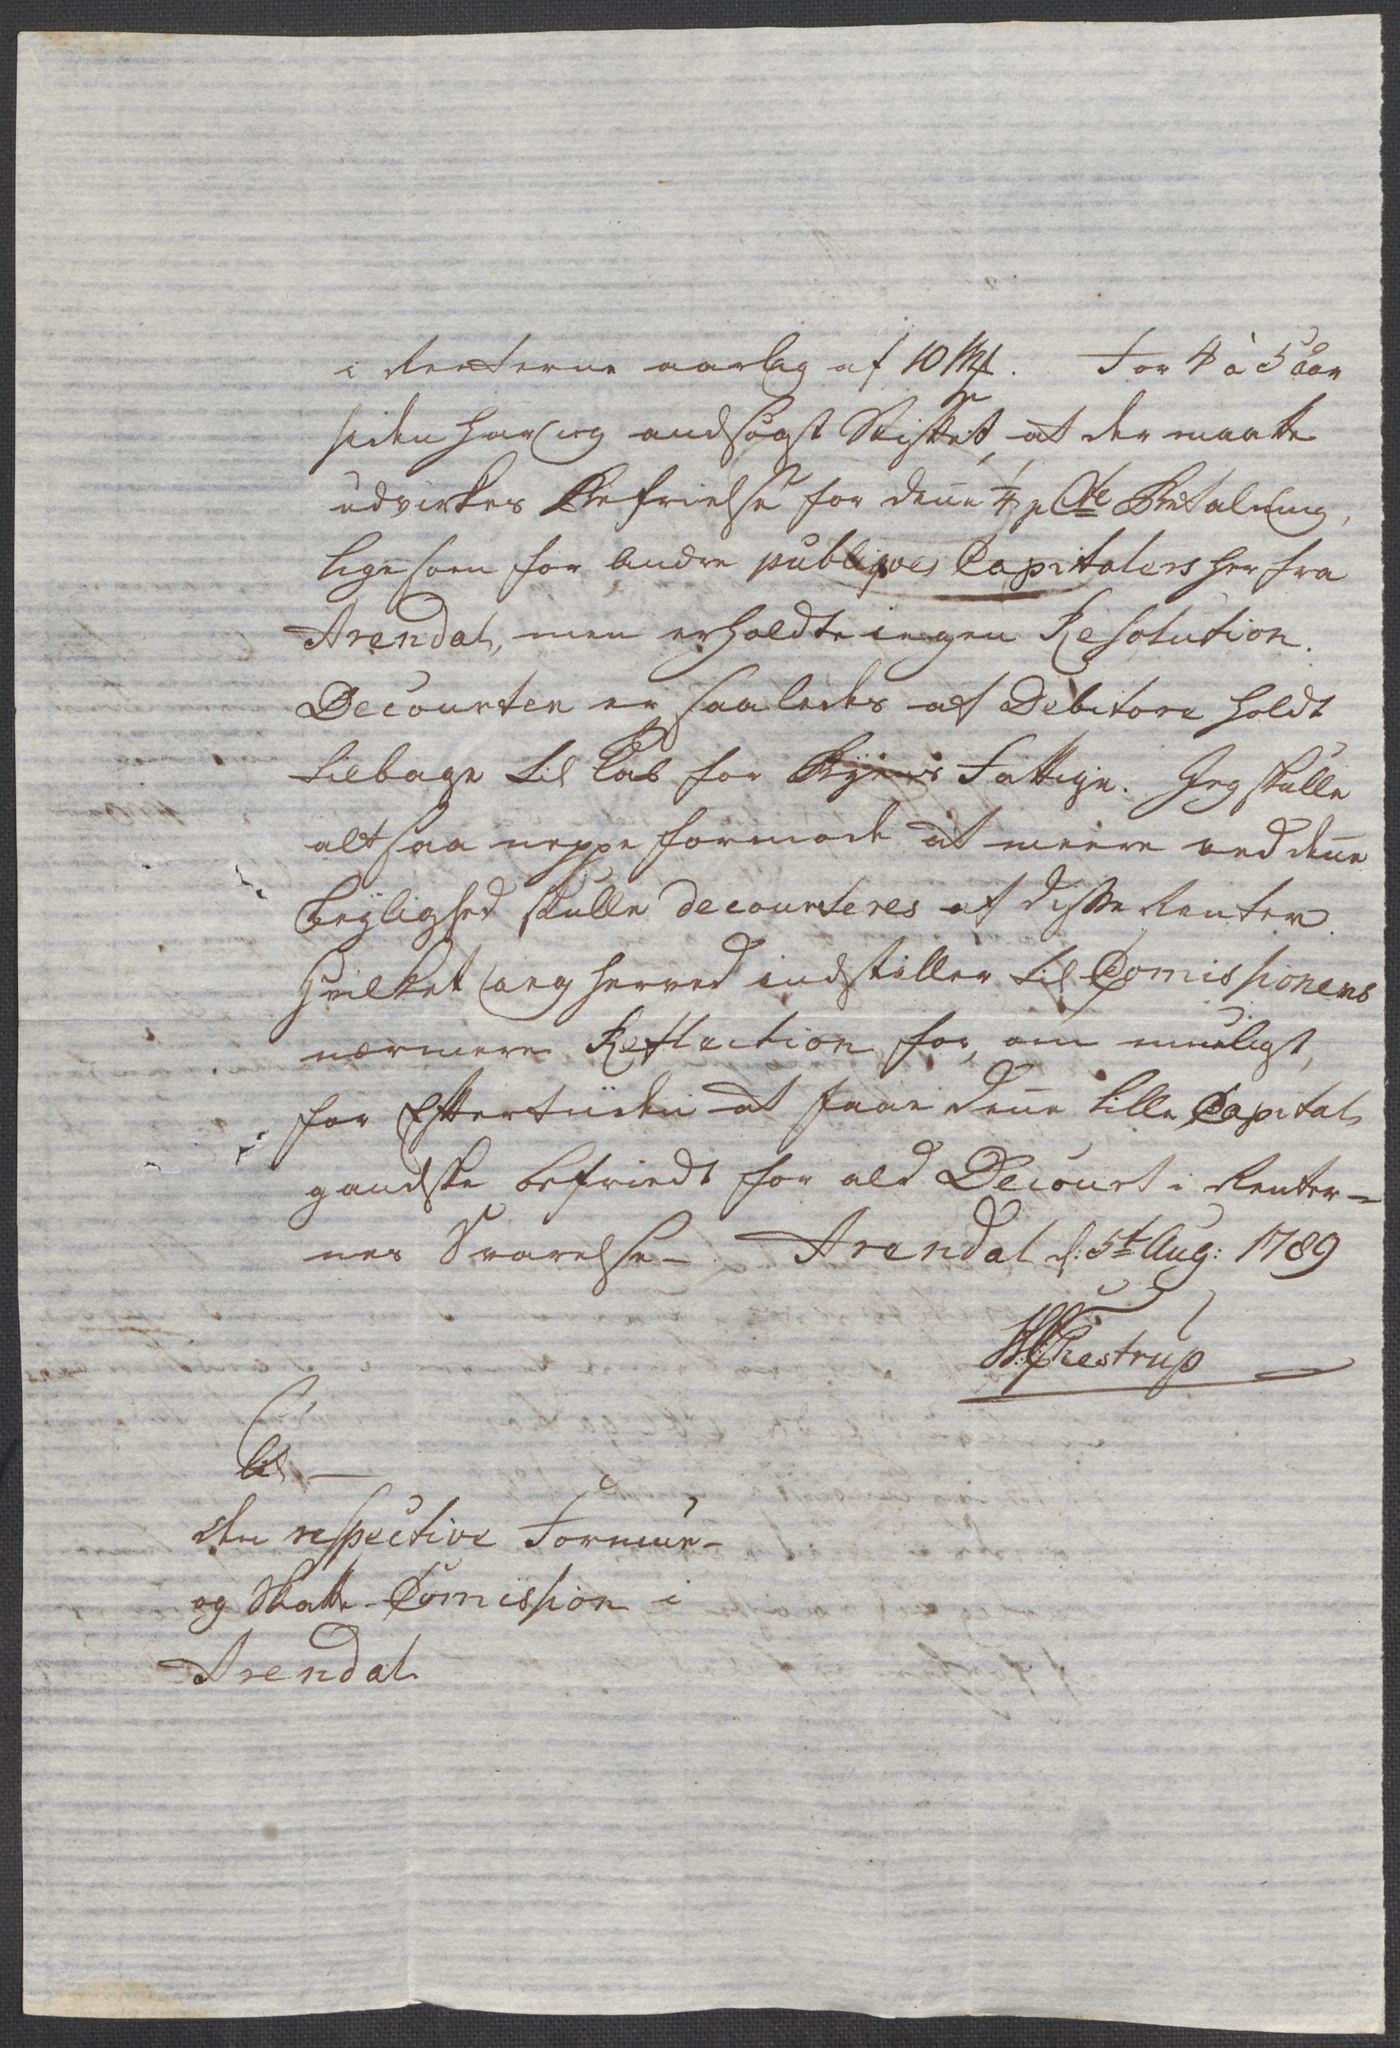 i Renterne aarlig af 10 Mk. For 4 à 5 Aar
siden har jeg andsøgt Stiftet, at der maatte
udvirkes Befrielse for denne 1/4 p Cto Betalning,
ligesom for andre publiqves Capitalers her fra
Arendal, men erholdte ingen Resolution.
Decourten er saaledes af Debitore holdt
tilbage til Tab for Byens Fattige. Jeg skulle
altsaa neppe formode at meere ved denne
Leylighed skulle decourteres af disse Renter.
Hvilket jeg herved indstiller til Comissionens
nærmere Reflection for, om mueligt,
for Eftertiiden at faae denne lille Capital
gandske befriedt for ald Decourt i Renter-
nes Svarelse. Arendal d: 5t Aug: 1789
Chestrup
Til
den respective Formue-
og Skatte-Comission i
Arendal